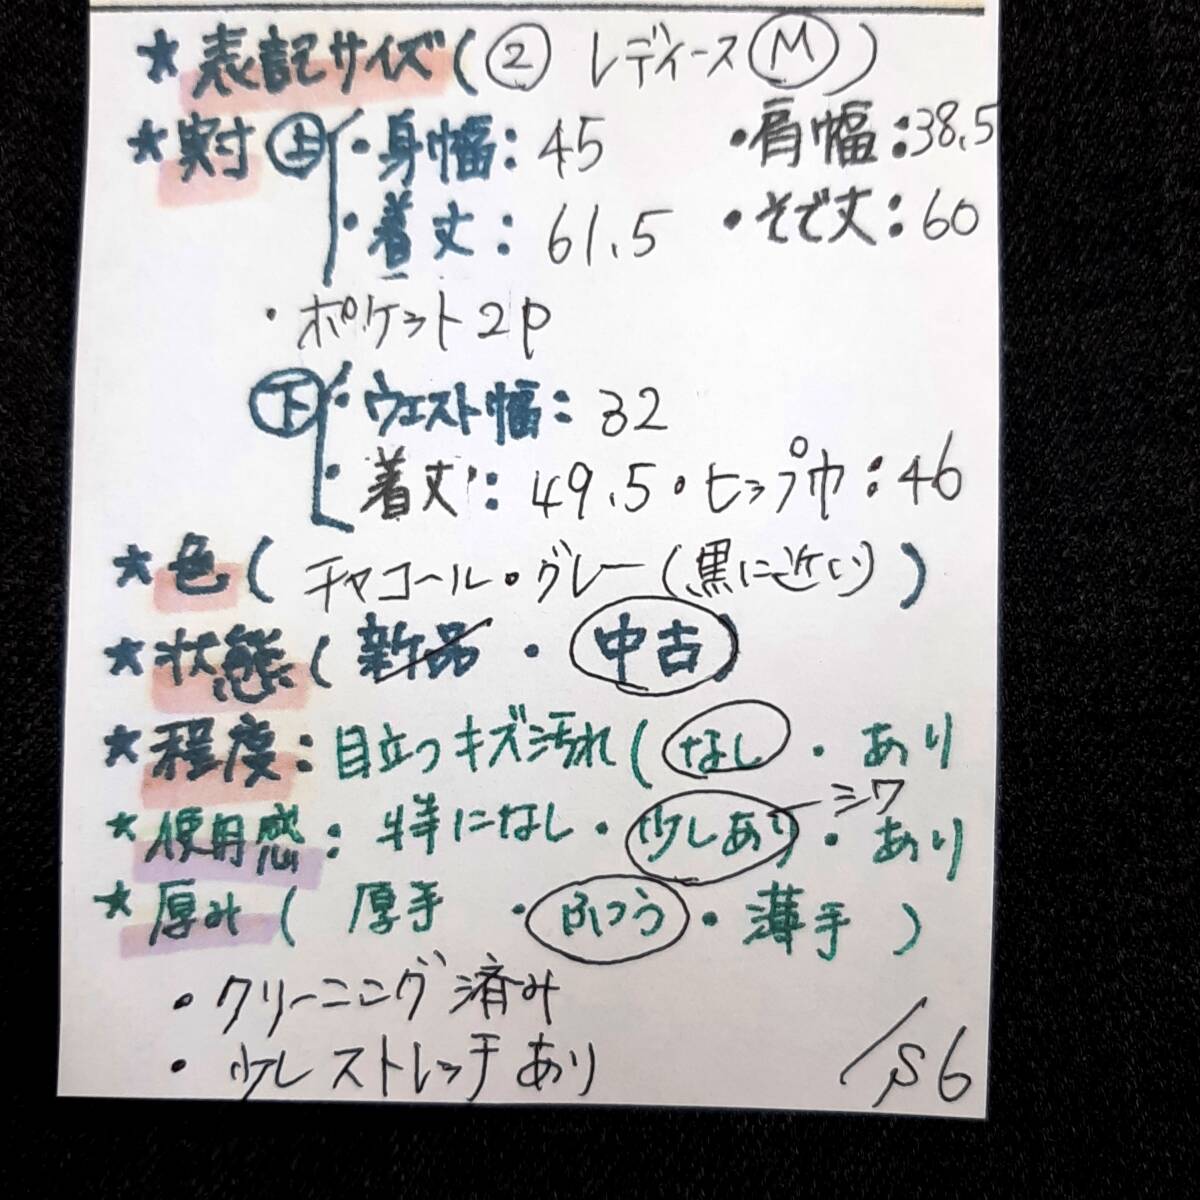 ★表記サイズ(② レディースⓂ)
★実寸㊤・身幅:45 ・肩幅:38.5
・着丈:61.5 ・そで丈:60
・ポケット2P
㊦・ウエスト幅:32
・着丈:49.5・ヒップ巾:46
★色(チャコール・グレー(黒に近い))
★状態(新品・中古)
★程度:目立つキズ汚れ(なし・あり
シワ
★使用感:特になし・少しあり・あり
★厚み(厚手・ふつう・薄手)
・クリーニング済み
・少しストレッチあり
/S6